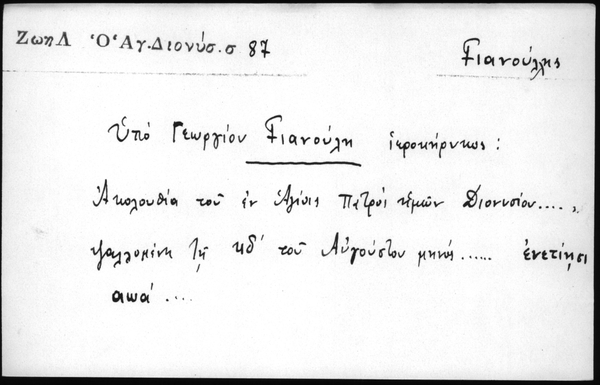 ΖωηΛ Ὁ Ἁγ.Διονύσ.σ 87
Γιανούλλης
Ὑπό Γεωργίου Γιανούλη ἱεροκήρυκος:
Ἀκολουθία τοῦ ἐν Ἁγίοις Πατρός ἡμῶν Διονυσίου....,
ψαλλομένη τῇ κδ' τοῦ Αὐγούστου μηνός...... ἐνετίῃσι
αωά ....